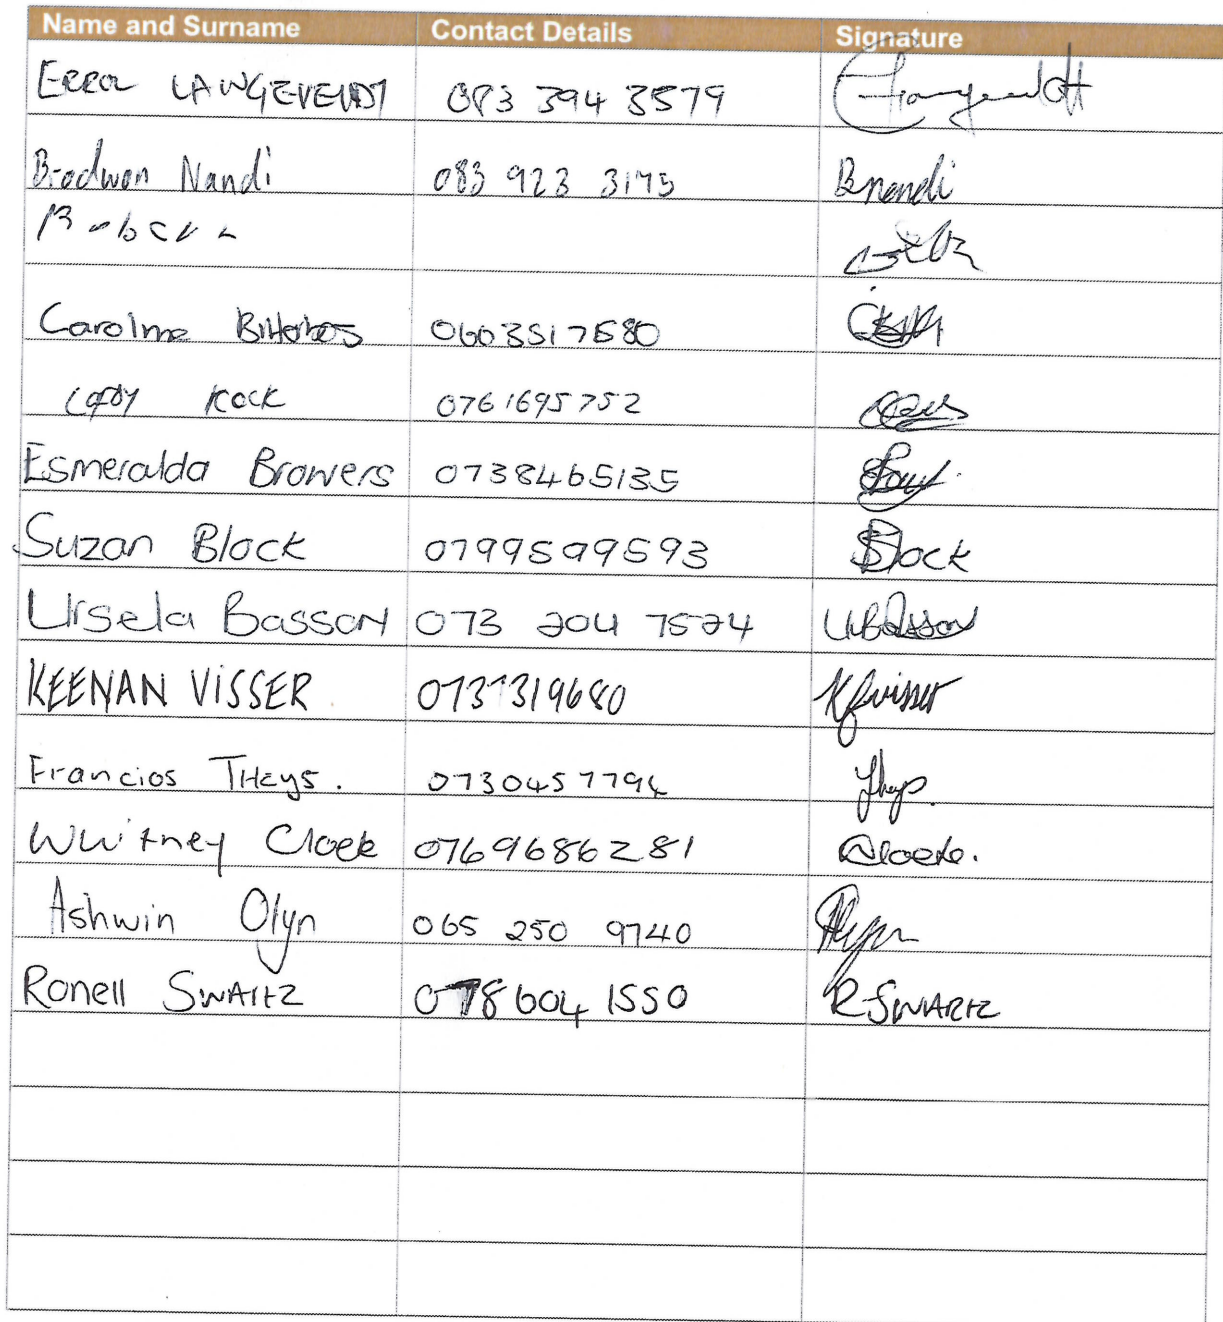 Name and Surname Contact Details Signature
Errol LANGEVELDT 083 394 3579
Brodwon Nandi 083 923 3175 Bnandi
Caroline 0603517580
Kock 0761695752
Esmeralda Browers 0738465135
Suzan Block 0799599593 SBlock
Ursela Basson 073 204 7524 UBasson
KEENAN VISSER 0737319680 Kfvisser
Francios THeys. 0730457794 Theys.
Whitney Cloete 0769686281 Cloete.
Ashwin Olyn 065 250 9740
Ronell SWArtz 078 604 1550 R SWARTZ